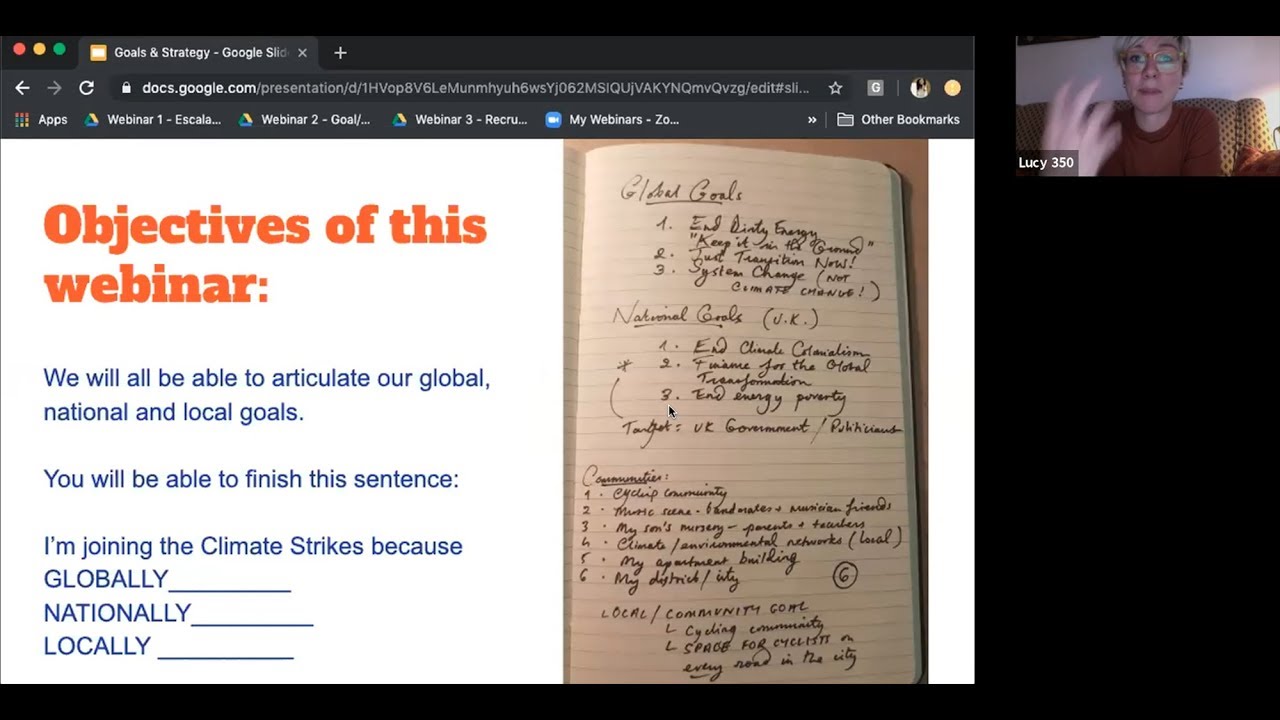 Goals & Strategy - Google Slid
docs.google.com/presentation/d/1HVop8V6LeMunmhyuh6wsYj062MSIQUjVAKYNQmvQvzg/edit#sli...
G
Apps
Webinar 1 - Escala...
Webinar 2 - Goal/...
Webinar 3 - Recru...
My Webinars - Zo...
»
Other Bookmarks
Objectives of this
webinar:
We will all be able to articulate our global,
national and local goals.
You will be able to finish this sentence:
I'm joining the Climate Strikes because
GLOBALLY_________
NATIONALLY_________
LOCALLY __________
Global Goals
1. End Dirty Energy
"Keep it in the Ground"
2. Just Transition Now!
3. System Change (NOT
CLIMATE CHANGE!)
National Goals (U.K.)
1. End Climate Colonialism
* 2. Finance for the Global
Transformation
3. End energy poverty
Target = UK Government / Politicians
Communities:
1. Cycling community
2. Music scene - bandmates + musician friends
3. My son's nursery - parents + teachers
4. Climate / environmental networks (local)
5. My apartment building
6. My district / city
6
LOCAL / COMMUNITY GOAL
L Cycling community
L SPACE FOR CYCLISTS on
every road in the city
Lucy 350